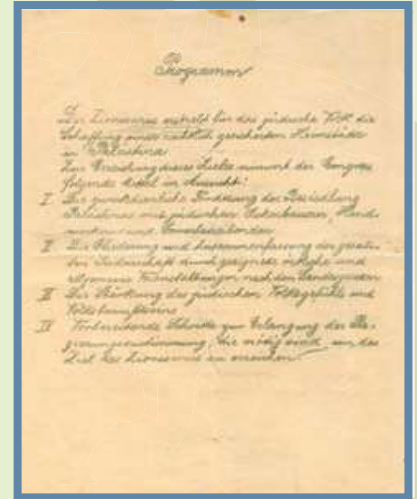 Programm
Der Zionismus erstrebt für das jüdische Volk die
Schaffung einer rechtlich gesicherten Heimstätte
in Palästina.
Zur Erreichung dieses Zieles nimmt der Congress
folgende Mittel in Aussicht:
I Die zweckdienliche Förderung der Besiedlung
Palästinas mit jüdischen Ackerbauern, Hand-
werkern und
II Die Gliederung und Zusammenfassung der
Judenschaft durch geeignete
allgemeine Veranstaltungen nach den Landesgesetzen
III Die Stärkung des jüdischen Volksgefühls und
Volksbewusstseins
IV Vorbereitende Schritte zur Erlangung der Re-
gierungszustimmung, die nötig sind, um das
Ziel des Zionismus zu erreichen.